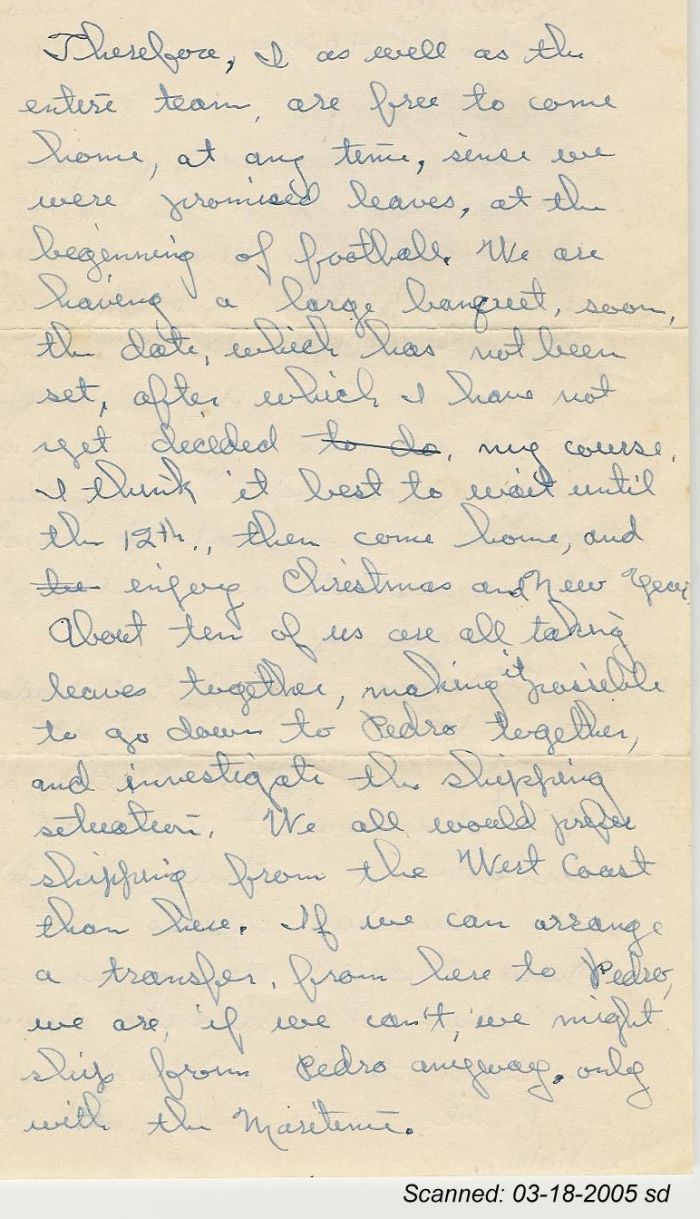 Therefore, I as well as the
entire team, are free to come
home, at any time, since we
were promised leaves, at the
beginning of football. We are
having a large banquet, soon,
the date, which has not been
set, after which I have not
yet decided to do, my course.
I think it best to wait until
the 12th., then come home, and
enjoy Christmas and New Year
About ten of us are all taking
leaves together, making it possible
to go down to Pedro together,
and investigate the shipping
situation. We all would prefer
shipping from the West Coast
than here. If we can arrange
a transfer, from here to Pedro,
we are, if we can't, we might
ship from Pedro anyway, only
with the Maritime.
Scanned: 03-18-2005 sd